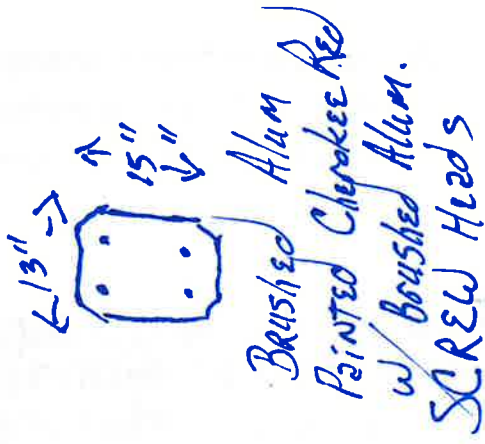 ←13"→
↑
15"
↓
Brushed Alum
Painted Cherokee Red
w/ Brushed Alum.
SCREW Heads